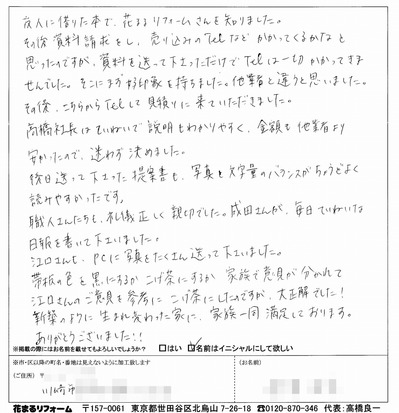 友人に借りた本で、花まるリフォームさんを知りました。
その後資料請求をし、売り込みのTelなどかかってくるかなと
思ったのですが、資料を送って下さっただけでTelは一切かかってきま
せんでした。そこにまず好印象を持ちました。他業者と違うと思いました。
その後、こちらからTelして見積りに来ていただきました。
高橋社長はていねいで説明もわかりやすく、金額も他業者より
安かったので、迷わず決めました。
後日送って下さった提案書も、写真と文字量のバランスがちょうどよく
読みやすかったです。
職人さんたちも、礼儀正しく親切でした。成田さんが、毎日ていねいな
日報を書いて下さいました。
江口さんも、PCに写真をたくさん送って下さいました。
帯板の色を黒にするかこげ茶にするか家族で意見が分かれて
江口さんのご意見を参考にこげ茶にしたのですが、大正解でした!
新築のように生まれ変わった家に、家族一同満足しております。
ありがとうございました!!
※掲載の際にはお名前を載せてもよろしいでしょうか? □はい ☑名前はイニシャルにして欲しい
※市・区以降の町名・番地は見えないように加工致します
(ご住所) 〒
(お名前)
川崎市
花まるリフォーム 〒157-0061 東京都世田谷区北烏山7-26-18 ☎0120-870-346 代表:高橋良一